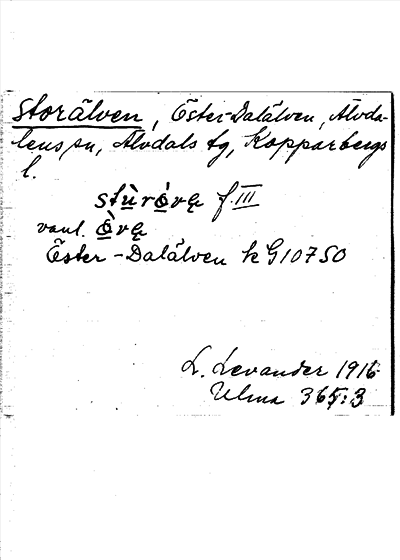 Storälven, Öster-Dalälven, Älvda-
lens sn, Älvdals tg, Kopparbergs
l.
stùró̱vę f. III
vanl. ò̱vę
Öster-Dalälven k G10750
L. Levander 1916
Ulma 365:3